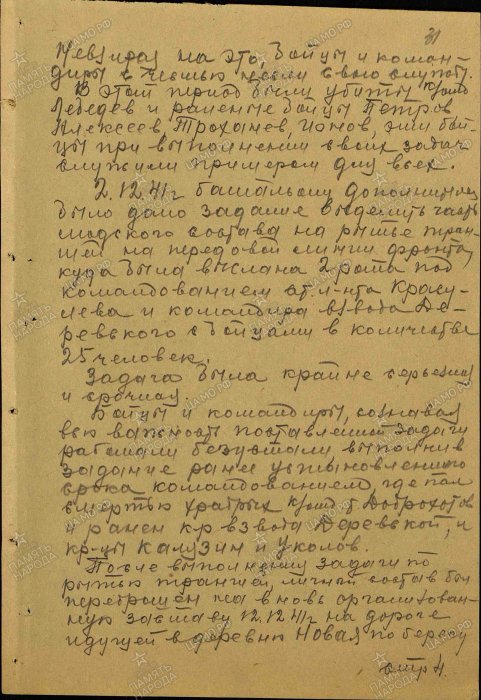 31
Невзирая на это, бойцы и коман-
диры с честью несли свою службу.
В этот период были убиты
Лебедев и раненые бойцы Петров
Алексеев, Троханев, Ионов, эти бой-
цы при выполнении своих задач
служили примером для всех.
2.12.41г батальону дополнительно
было дано задание выделить часть
людского состава на рытье тран-
шей на передовой линии фронта,
куда была выслана 2 рота под
командованием ст. л-нта Красу-
лева и командира взвода Де-
ревского с бойцами в количестве
25 человек.
Задача была крайне серьезная
и срочная
Бойцы и командиры, сознавая
всю важность поставленной задачи
работали безустали выполнив
задание ранее установленного
срока командованием, где пал
смертью храбрых Доброхотов
и ранен к-р взвода Деревской, и
кр-цы Калузин и Уколов.
После выполнения задачи по
рытью траншей, личный состав был
переброшен на вновь организован-
ную заставу 12.12.41г на дороге
идущей в деревню Новая по берегу
стр 4.